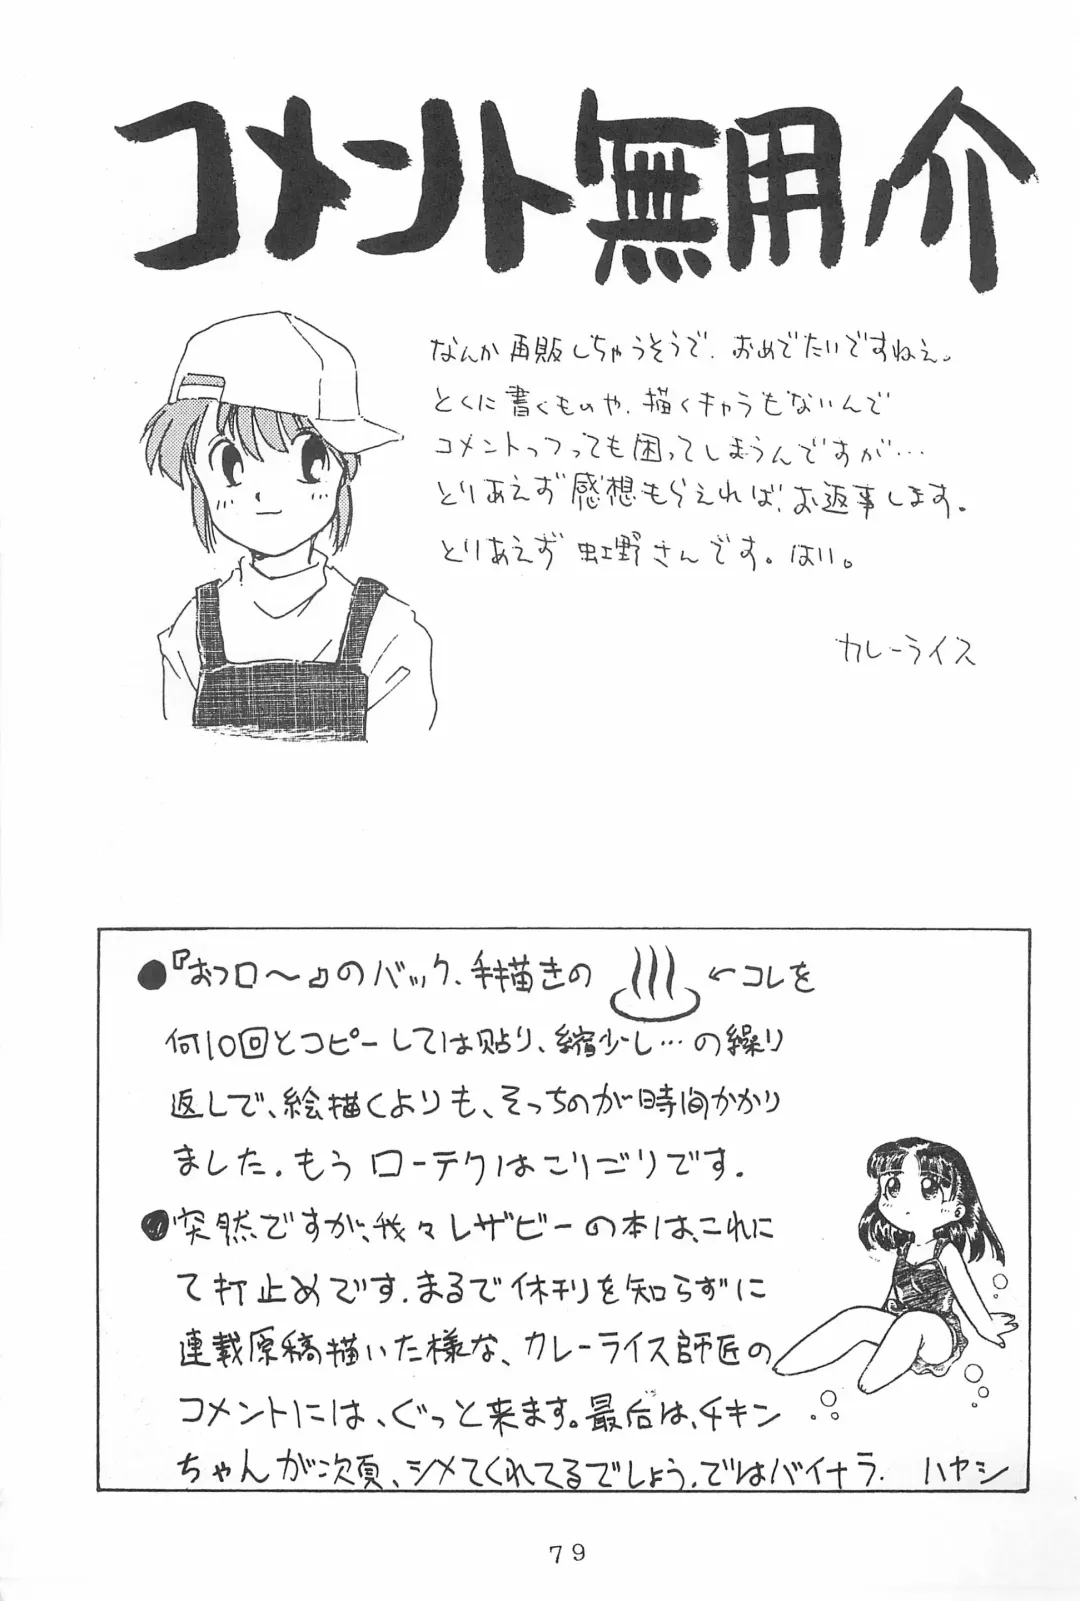 コメント無用ノ介
なんか再販しちゃうそうで、おめでたいですねえ。
とくに書くものや、描くキャラもないんで
コメントっつっても困ってしまうんですが…
とりあえず感想もらえれば、お返事します。
とりあえず虹野さんです。はい。
カレーライス
●『おフロ〜』のバック、手描きの♨←コレを
何10回とコピーしては貼り、縮少し…の繰り
返しで、絵描くよりも、そっちのが時間かかり
ました。もうローテクはこりごりです。
●突然ですが、我々レザビーの本は、これに
て打止めです。まるで休刊を知らずに
連載原稿描いた様な、カレーライス師匠の
コメントには、ぐっと来ます。最后は、チキン
ちゃんが次頁、シメてくれてるでしょう。ではバイナラ. ハヤシ
79